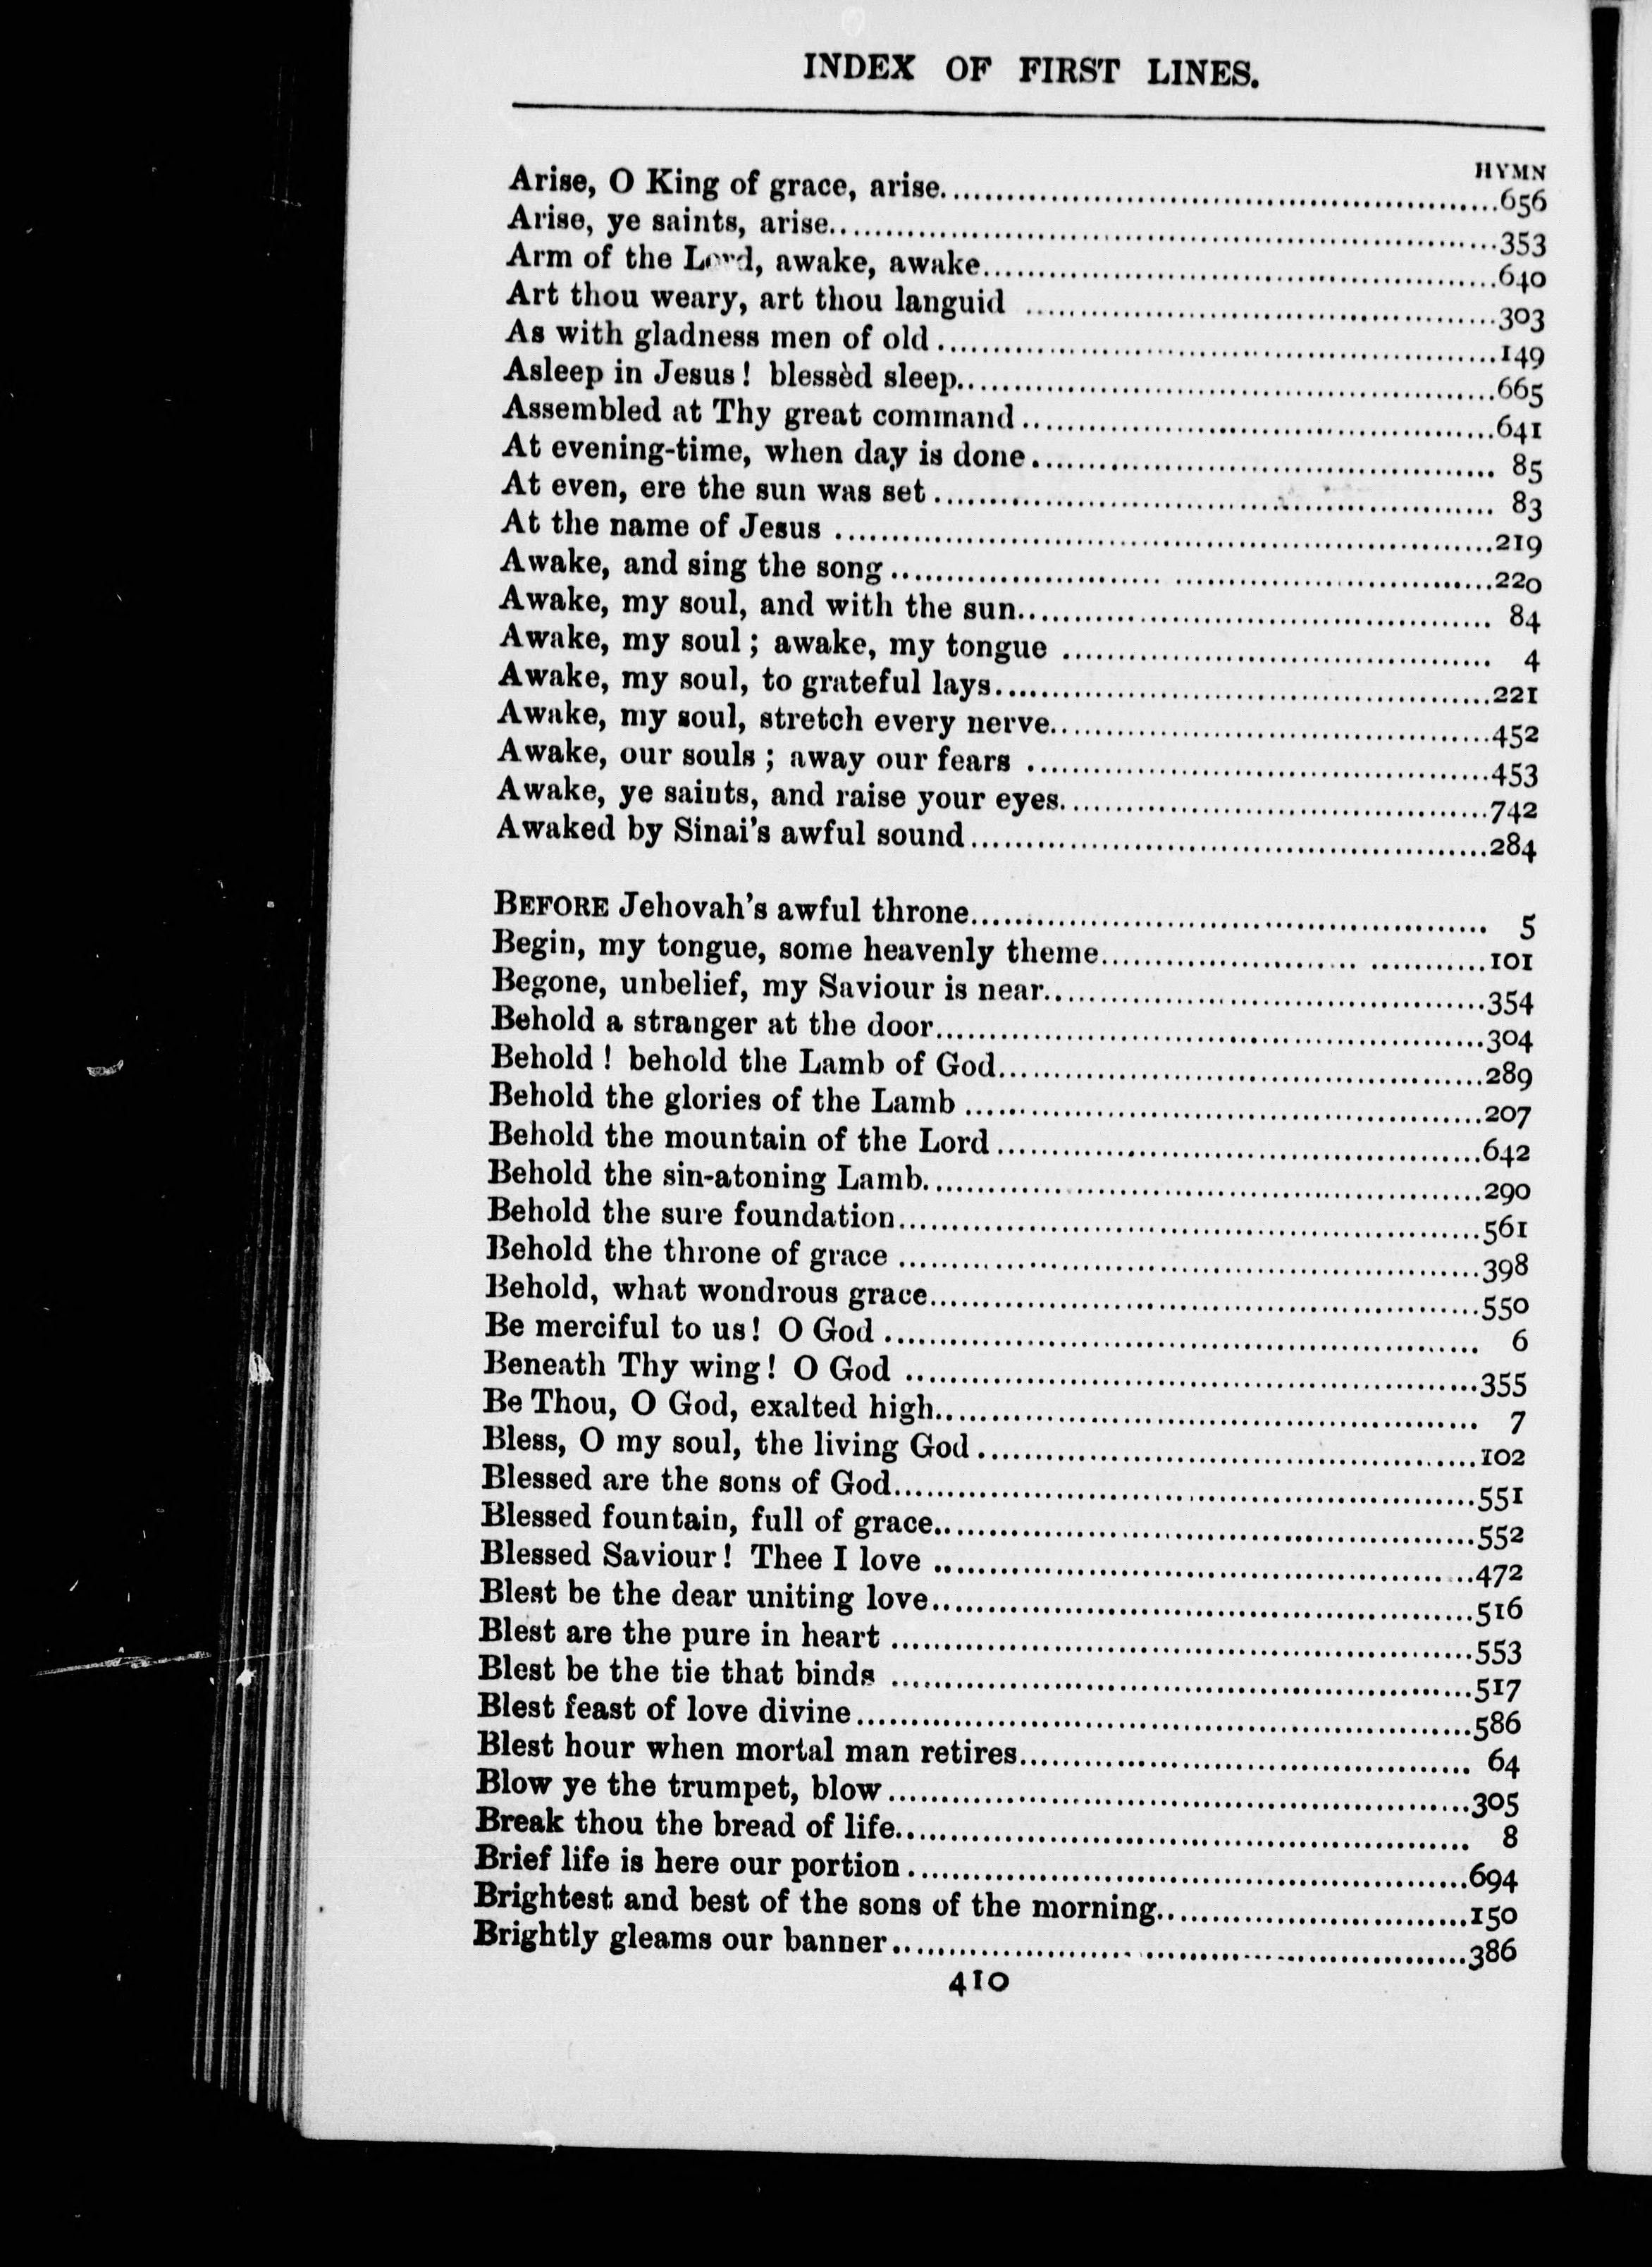 INDEX OF FIRST LINES.
HYMN
Arise, O King of grace, arise..........656
Arise, ye saints, arise..........353
Arm of the Lord, awake, awake..........640
Art thou weary, art thou languid ..........303
As with gladness men of old..........149
Asleep in Jesus! blessèd sleep..........665
Assembled at Thy great command..........641
At evening-time, when day is done.......... 85
At even, ere the sun was set.......... 83
At the name of Jesus ..........219
Awake, and sing the song..........220
Awake, my soul, and with the sun.......... 84
Awake, my soul; awake, my tongue .......... 4
Awake, my soul, to grateful lays..........221
Awake, my soul, stretch every nerve..........452
Awake, our souls; away our fears ..........453
Awake, ye saints, and raise your eyes..........742
Awaked by Sinai's awful sound..........284
BEFORE Jehovah's awful throne.......... 5
Begin, my tongue, some heavenly theme..........101
Begone, unbelief, my Saviour is near..........354
Behold a stranger at the door..........304
Behold! behold the Lamb of God..........289
Behold the glories of the Lamb ..........207
Behold the mountain of the Lord..........642
Behold the sin-atoning Lamb..........290
Behold the sure foundation..........561
Behold the throne of grace ..........398
Behold, what wondrous grace..........550
Be merciful to us! O God .......... 6
Beneath Thy wing! O God ..........355
Be Thou, O God, exalted high.......... 7
Bless, O my soul, the living God..........102
Blessed are the sons of God..........551
Blessed fountain, full of grace..........552
Blessed Saviour! Thee I love ..........472
Blest be the dear uniting love..........516
Blest are the pure in heart ..........553
Blest be the tie that binds ..........517
Blest feast of love divine..........586
Blest hour when mortal man retires.......... 64
Blow ye the trumpet, blow..........305
Break thou the bread of life.......... 8
Brief life is here our portion..........694
Brightest and best of the sons of the morning..........150
Brightly gleams our banner..........386
410